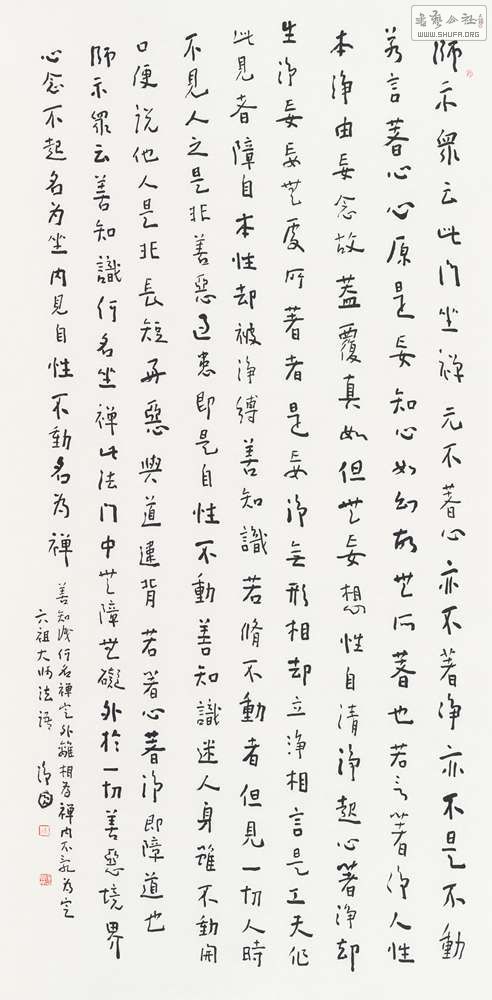 書藝公社
WWW.SHUFA.ORG
師示眾云此門坐禪元不著心亦不著淨亦不是不動
若言著心心原是妄知心如幻故無所著也若言著淨人性
本淨由妄念故蓋覆真如但無妄想性自清淨起心著淨却
生淨妄妄無處所著者是妄淨無形相却立淨相言是工夫作
此見者障自本性却被淨縛善知識若脩不動者但見一切人時
不見人之是非善惡過患即是自性不動善知識迷人身雖不動開
口便說他人是非長短再惡與道違背若著心著淨即障道也
師示眾云善知識何名坐禪此法門中無障無礙外於一切善惡境界
心念不起名為坐內見自性不動名為禪
善知識何名禪定外離相為禪內不亂為定
六祖大師法語